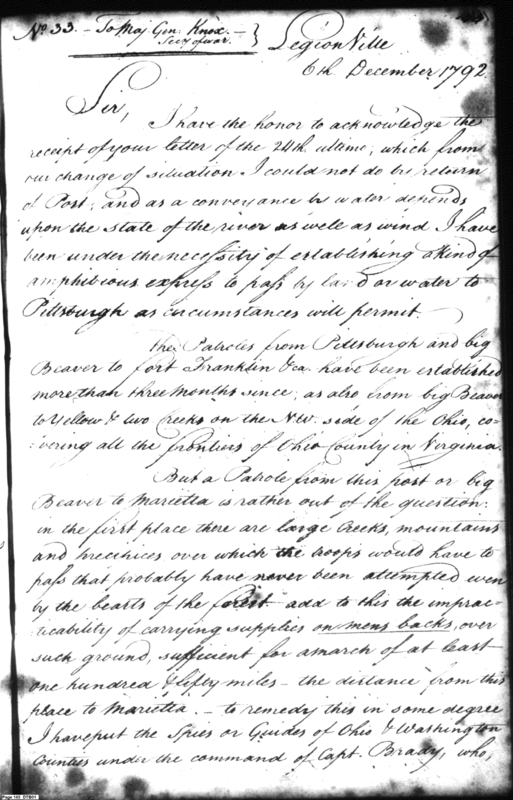 No. 33. - To Maj. Gen. Knox. -
Secy of war. }
Legion Ville
6th December 1792
Sir,
I have the honor to acknowledge the
receipt of your letter of the 24th ultimo, which from
our change of situation I could not do by return
of Post, and as a conveyance by water depends
upon the state of the river as well as wind I have
been under the necessity of establishing a kind of
amphibious express to pass by land or water to
Pittsburgh as circumstances will permit.
The Patroles from Pittsburgh and big
Beaver to fort Franklin &ca. have been established
more than three Months since; as also from big Beaver
to Yellow & two Creeks on the N.W. side of the Ohio, co-
-vering all the frontiers of Ohio County in Virginia.
But a Patrole from this post or big
Beaver to Marietta is rather out of the question:
in the first place there are large Creeks, mountains
and precipices over which the troops would have to
pass that probably have never been attempted even
by the bearts of the forest add to this the imprac-
-ticability of carrying supplies on mens backs, over
such ground, sufficient for a march of at least
one hundred & fifty miles - the distance from this
place to Marietta. - to remedy this in some degree
I have put the Spies or Guides of Ohio & Washington
Counties under the command of Capt. Brady, who,
Page 103 DTB01